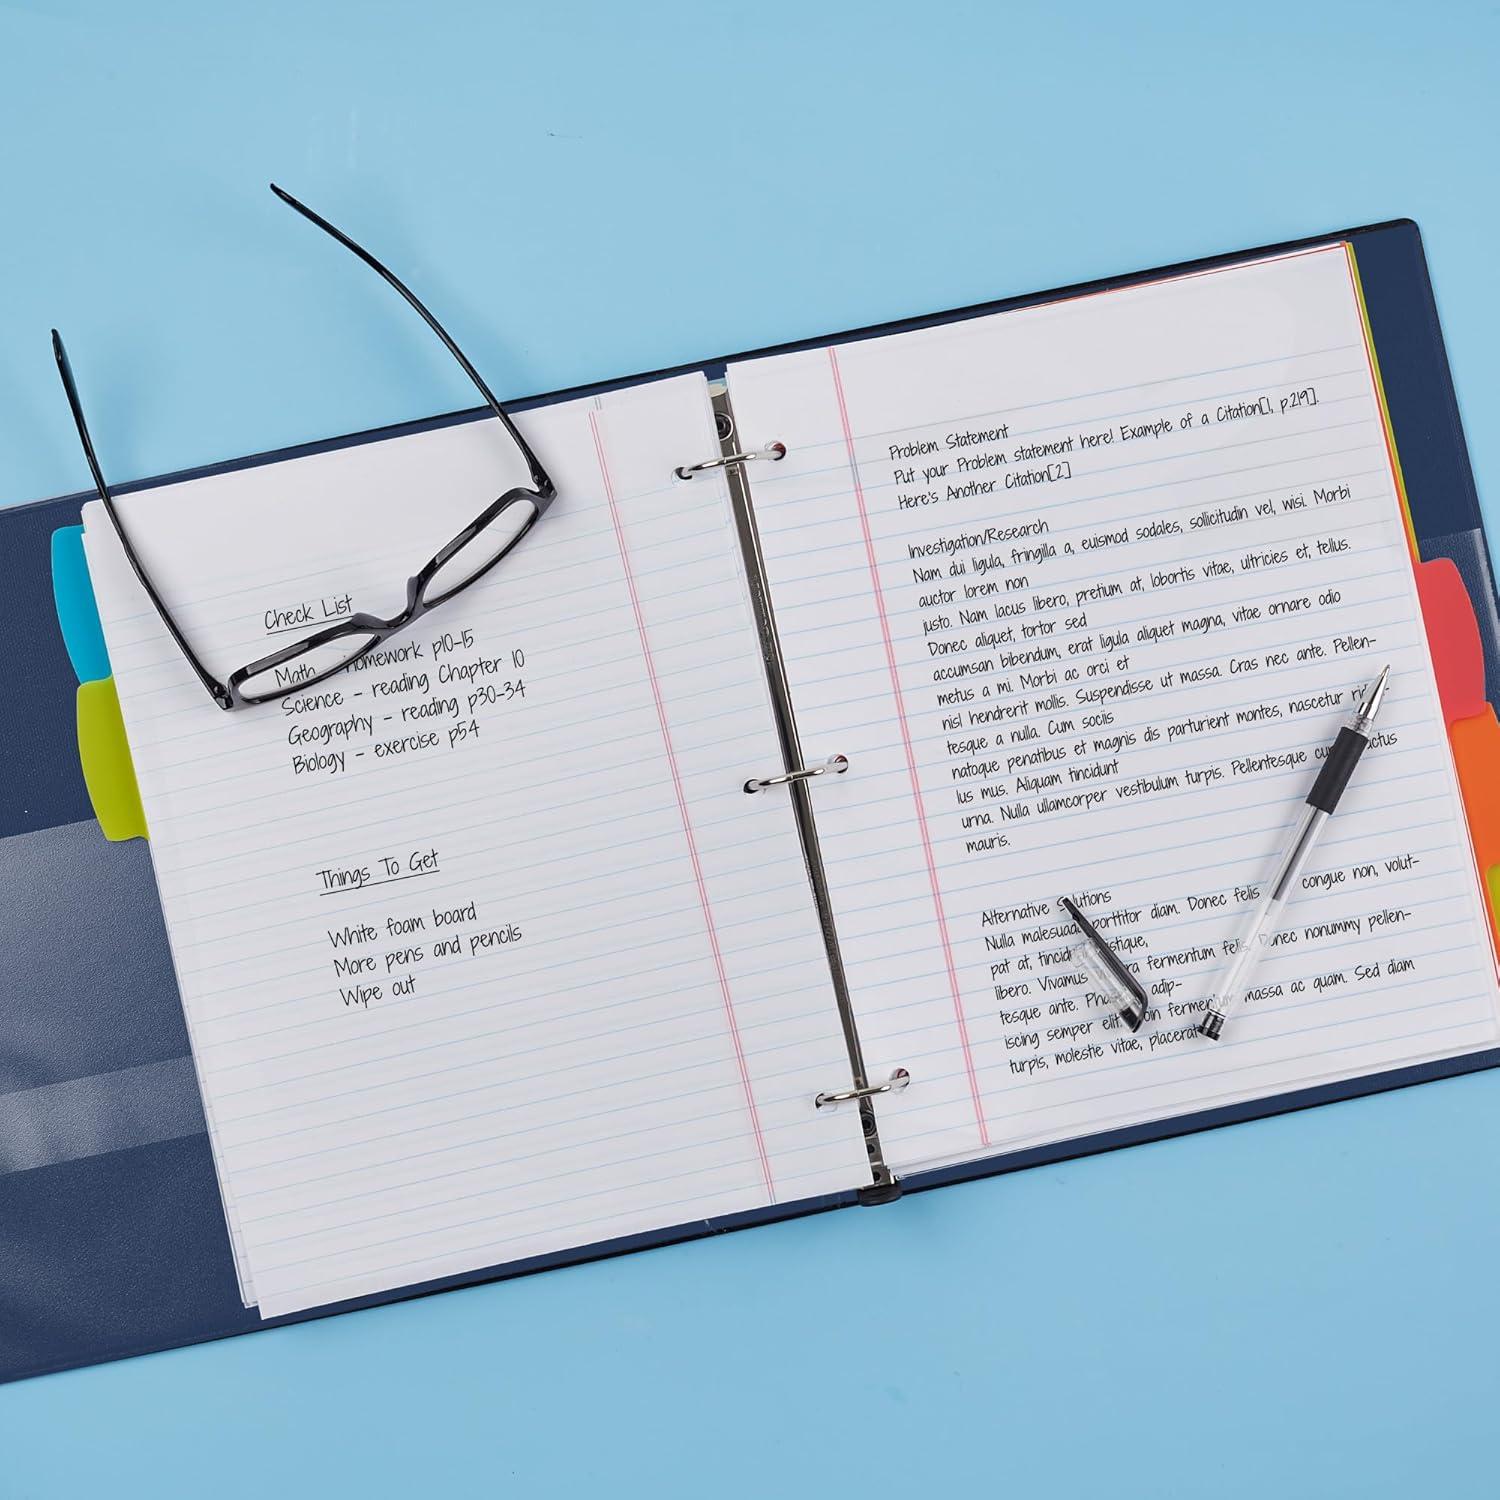 Check List
Math homework p10-15
Science - reading Chapter 10
Geography - reading p30-34
Biology - exercise p54
Things To Get
White foam board
More pens and pencils
Wipe out
Problem Statement
Put your Problem statement here! Example of a Citation[1, p.219].
Here's Another Citation[2]
Investigation/Research
Nam dui ligula, fringilla a, euismod sodales, sollicitudin vel, wisi. Morbi
auctor lorem non
justo. Nam lacus libero, pretium at, lobortis vitae, ultricies et, tellus.
Donec aliquet, tortor sed
accumsan bibendum, erat ligula aliquet magna, vitae ornare odio
metus a mi. Morbi ac orci et
nisl hendrerit mollis. Suspendisse ut massa. Cras nec ante. Pellen-
tesque a nulla. Cum sociis
natoque penatibus et magnis dis parturient montes, nascetur
lus mus. Aliquam tincidunt
urna. Nulla ullamcorper vestibulum turpis. Pellentesque
mauris.
Alternative Solutions
Nulla malesuada porttitor diam. Donec felis congue non, volut-
pat at, tincidunt tristique,
libero. Vivamus fermentum felis. Donec nonummy pellen-
tesque ante. adip-
iscing semper elit. Proin fermentum massa ac quam. Sed diam
turpis, molestie vitae, placerat